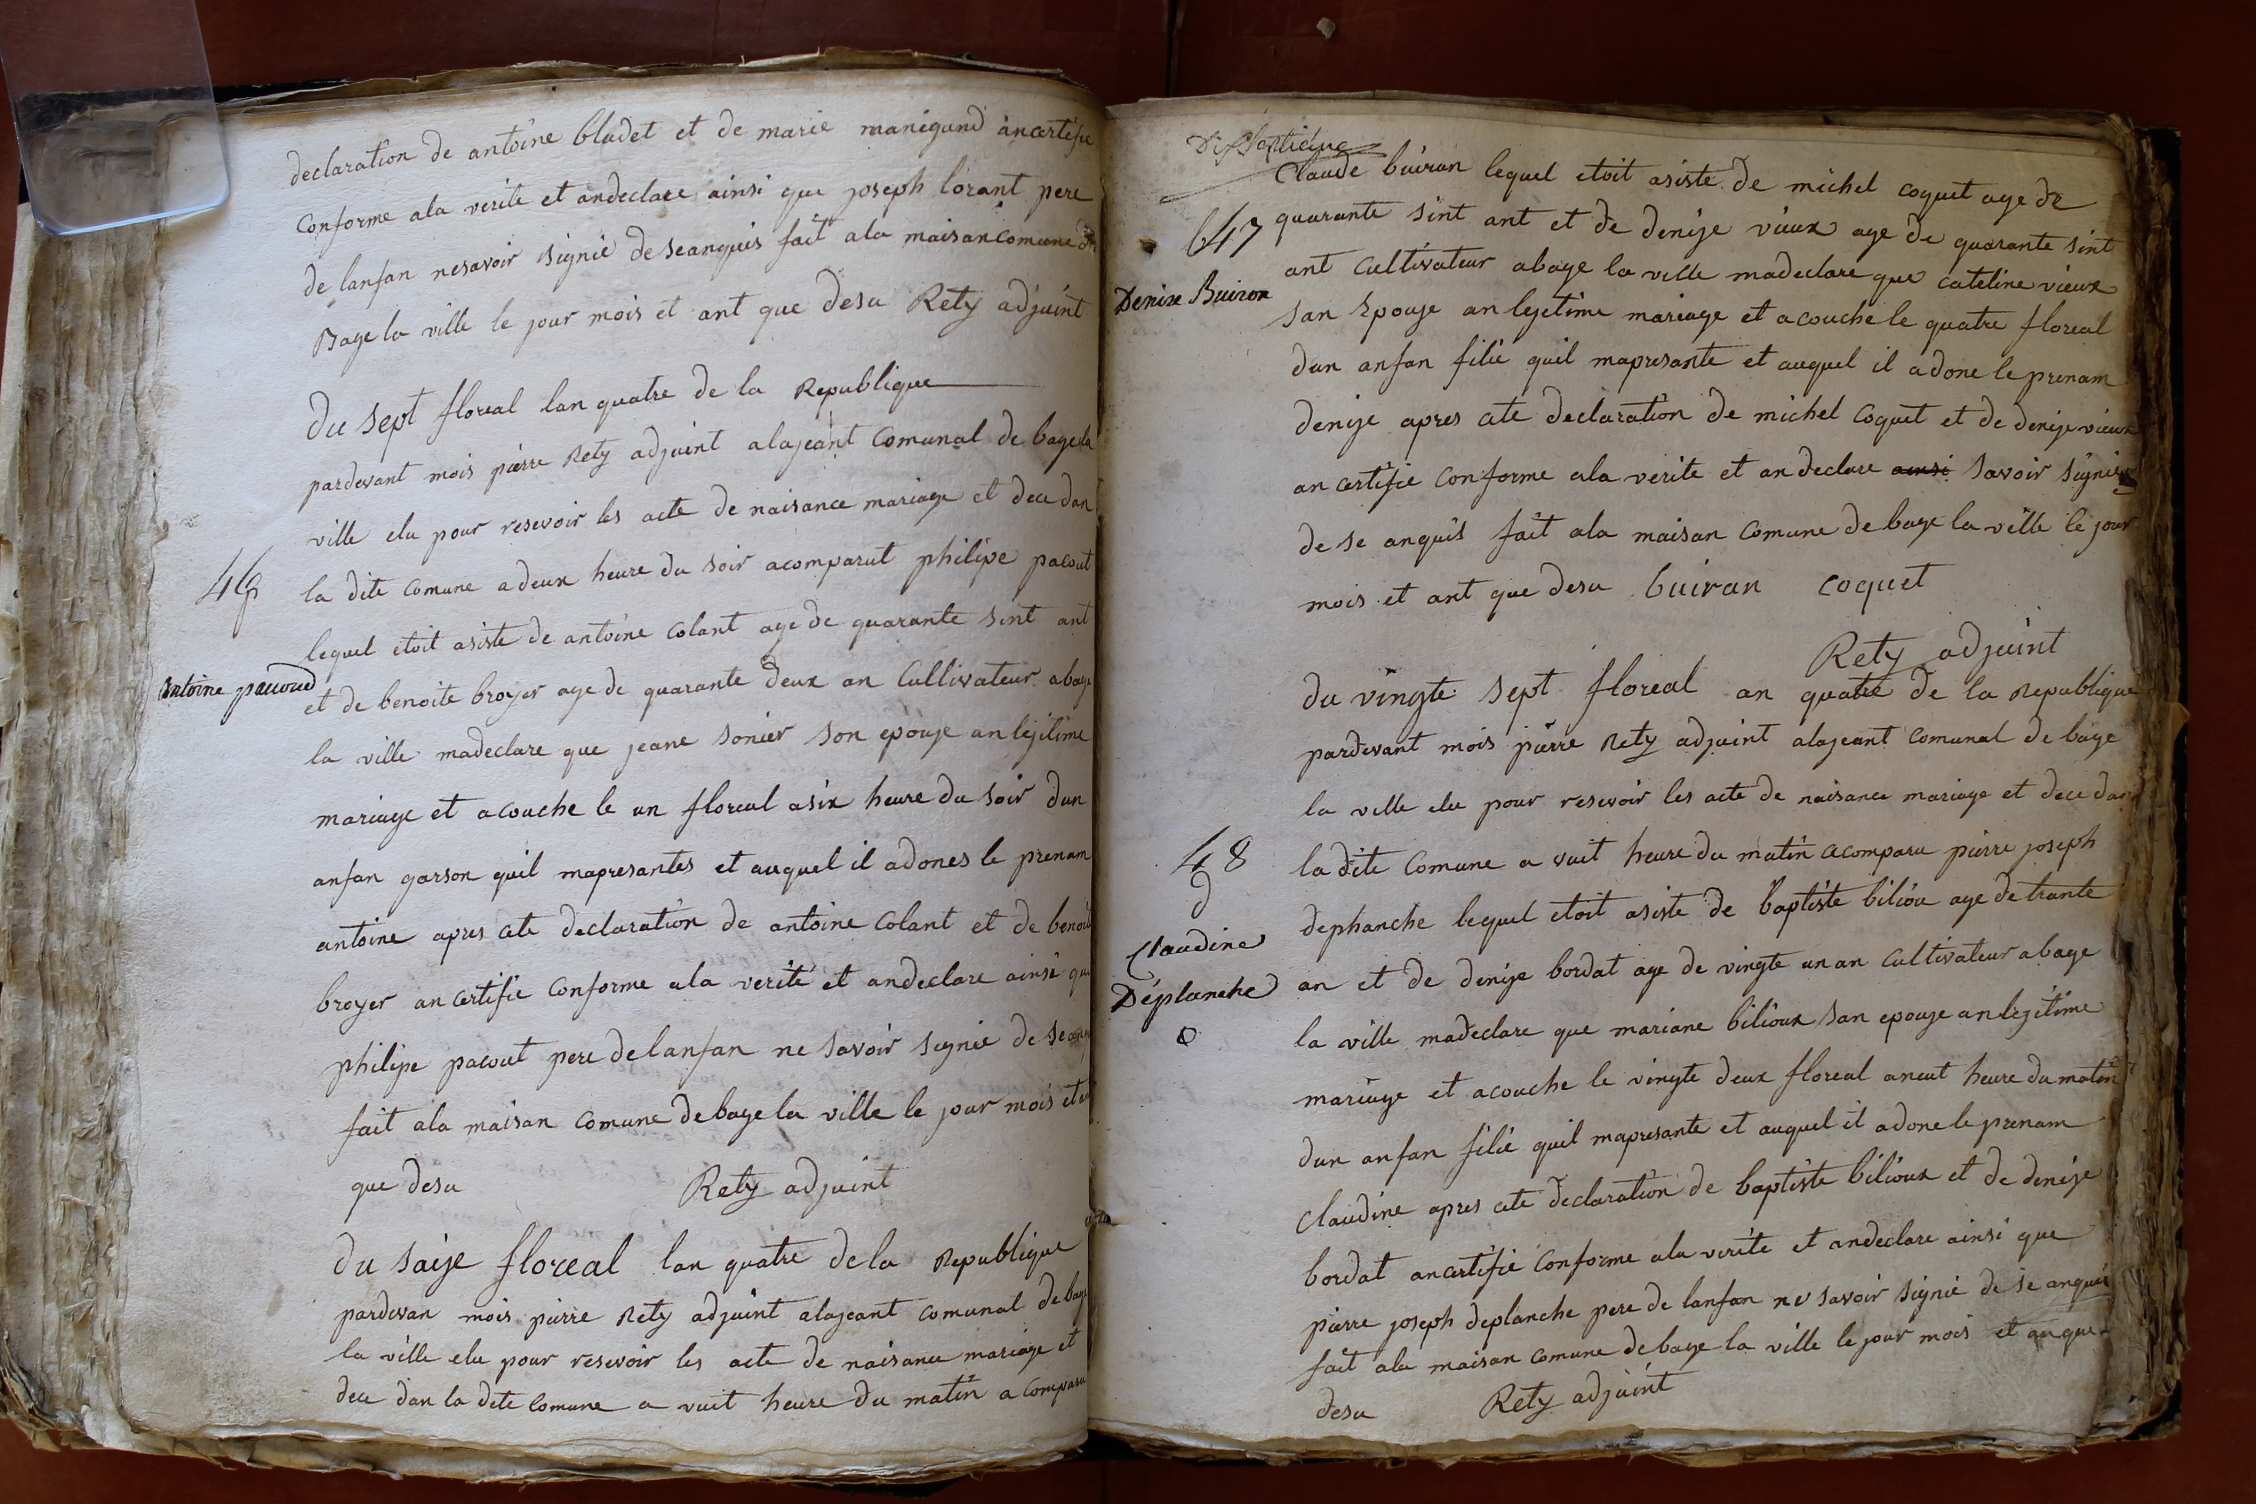 declaration de antoine bladet et de marie manigand ancertifie
conforme ala verite et andeclare ainsi que joseph lorant pere
de lanfan nesavoir signié de seanquis fait ala maisan comune de
Bage la ville le jour mois et ant que desu Rety adjuint
du sept floreal lan quatre de la Republique
pardevant mois pierre Rety adjuint alajeant comunal de bage la
ville elu pour resevoir les acte de naisance mariage et dece dan
46
la dite comune a deux heure du soir acomparut philipe pacout
lequel etoit asiste de antoine colant age de quarante sint ant
antoine pacoud
et de benoite broyer age de quarante deux an Cultivateur abage
la ville madeclare que jeane sonier son epouse an lejitime
mariage et acouche le un floreal asix heure du soir dun
anfan garson quil mapresantes et auquel il adones le prenam
antoine apres cete declaration de antoine colant et de benoite
broyer an certifie conforme ala verite et andeclare ainsi que
philipe pacout pere de lanfan ne savoir signié de se
fait ala maisan comune de bage la ville le jour mois et
que desu Rety adjuint
du saize floreal lan quatre de la Republique
pardevan mois pierre Rety adjuint alajeant comunal de bage
la ville elu pour resevoir les acte de naisance mariage et
dece dan la dite comune a vuit heure du matin a comparu
Claude buiran lequel etoit asiste de michel coquet age de
647
quarante sint ant et de denise vieux age de quarante sint
ant Cultivateur abage la ville madeclare que cateline vieux
Denise Buiron
san Epouse an lejetime mariage et acouche le quatre floreal
dun anfan filie quil mapresante et auquel il adone le prenam
denise apres cete declaration de michel coquet et de denise vieux
an certifie conforme ala verite et an declare ainsi savoir signié
de se anquis fait ala maisan comune de bage la ville le jour
mois et ant que desu buiran coquet
Rety adjuint
du vingte sept floreal an quatre de la Republique
pardevant mois pierre Rety adjuint alajeant comunal de bage
la ville elu pour resevoir les acte de naisance mariage et dece dan
48
la dite comune a vuit heure du matin acomparu pierre joseph
d
dephanche lequel etoit asiste de baptiste biliou age de trante
Claudine
an et de denise bordat age de vingte un an cultivateur abage
Déplanche
la ville madeclare que mariane bilioux san epouse an lejitime
mariage et acouche le vingte deux floreal aneut heure du matin
dun anfan filie quil mapresante et auquel il adone le prenam
Claudine apres cete declaration de baptiste bilioux et de denise
bordat ancertifie conforme ala verite et andeclare ainsi que
pierre joseph deplanche pere de lanfan ne savoir signié de se anquis
fait ala maisan comune de bage la ville le jour mois et an que
desu Rety adjuint